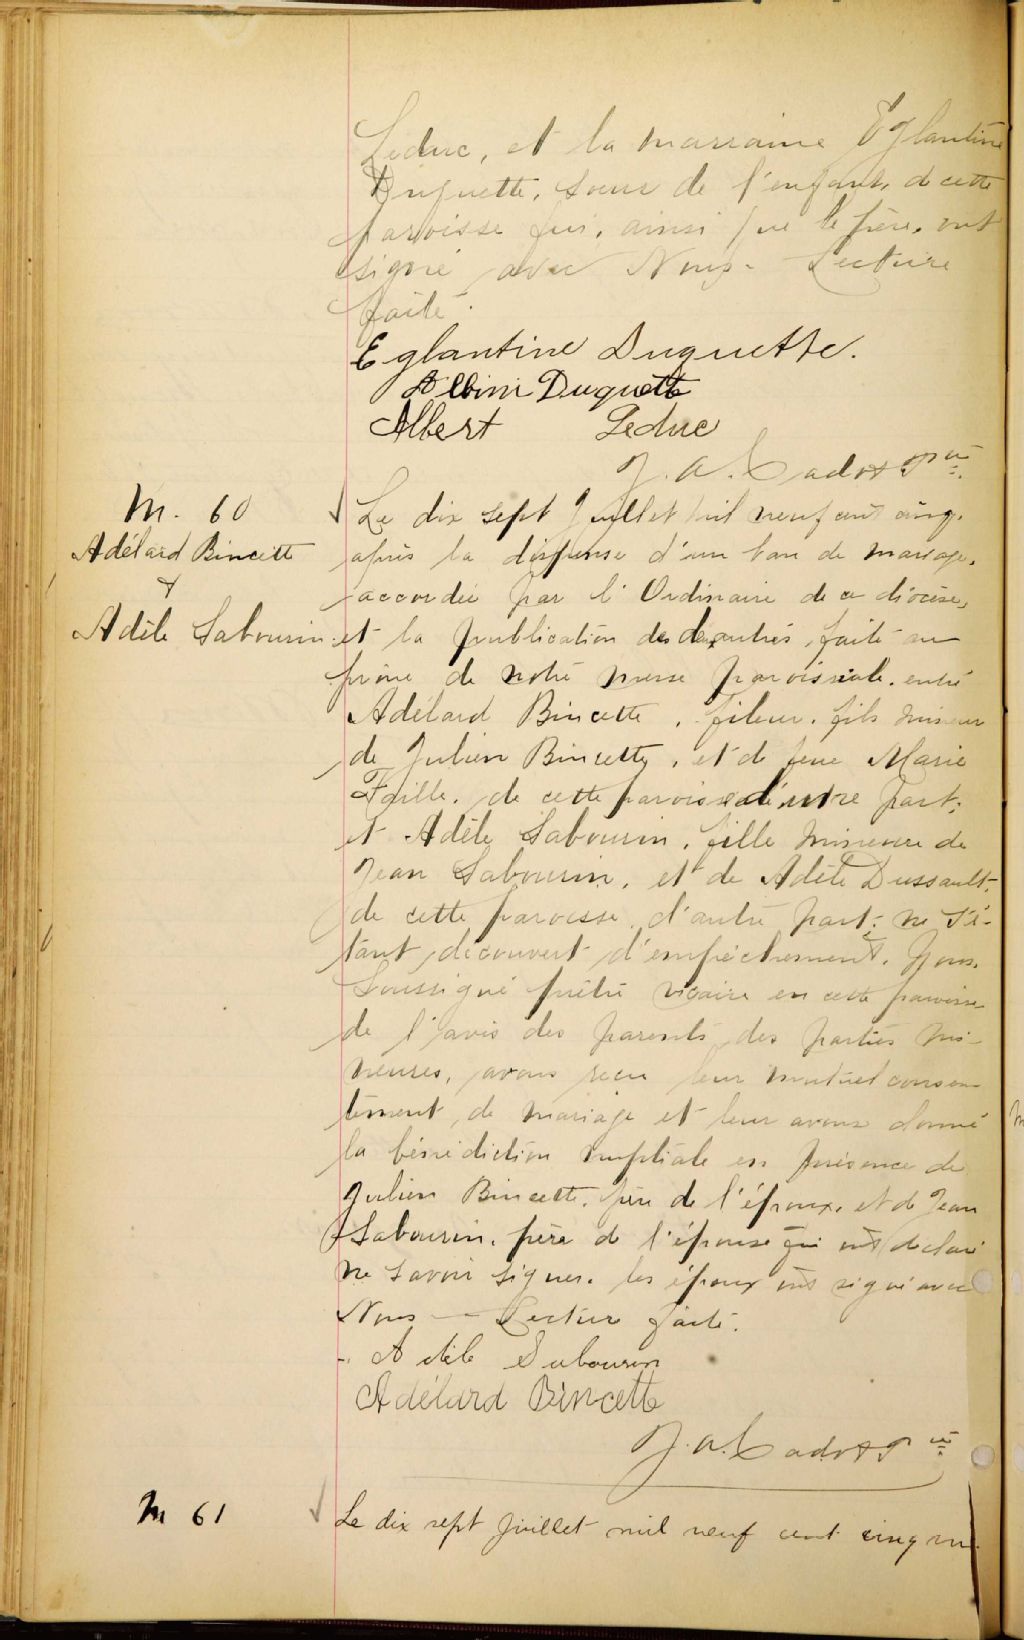 Leduc, et la marraine Eglantine
Duquette, soeur de l'enfant, de cette
paroisse qui, ainsi que le père, ont
signé avec Nous. Lecture
faite.
Eglantine Duquette.
Albini Duquette
Albert Leduc
J. A. Cadot Ptre
M. 60
Adélard Bincette
&
Adèle Sabourin
Le dix sept Juillet mil neuf cent cinq,
après la dispense d'un ban de mariage,
accordée par l'Ordinaire de ce diocèse,
et la publication des deux autres, faite au
prône de notre messe paroissiale, entre
Adélard Bincette, fileur, fils mineur
de Julien Bincette, et de feue Marie
Faille, de cette paroisse d'une part;
et Adèle Sabourin, fille mineure de
Jean Sabourin, et de Adèle Dussault,
de cette paroisse, d'autre part; ne s'é-
tant découvert d'empêchement, Nous,
Soussigné prêtre vicaire en cette paroisse
de l'avis des parents des parties mi-
neures, avons reçu leur mutuel consen-
tement de mariage et leur avons donné
la bénédiction nuptiale en présence de
Julien Bincette, père de l'époux, et de Jean
Sabourin, père de l'épouse qui ont déclaré
ne savoir signer. les époux ont signé avec
Nous — Lecture faite.
Adèle Sabourin
Adélard Bincette
J. A. Cadot Ptre
M 61
Le dix sept Juillet mil neuf cent cinq